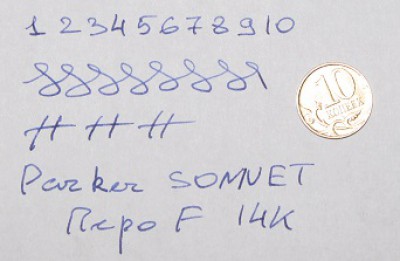 1 2 3 4 5 6 7 8 9 10
# # #
Parker SONNET
Перо F 14К
10
КОПЕЕК